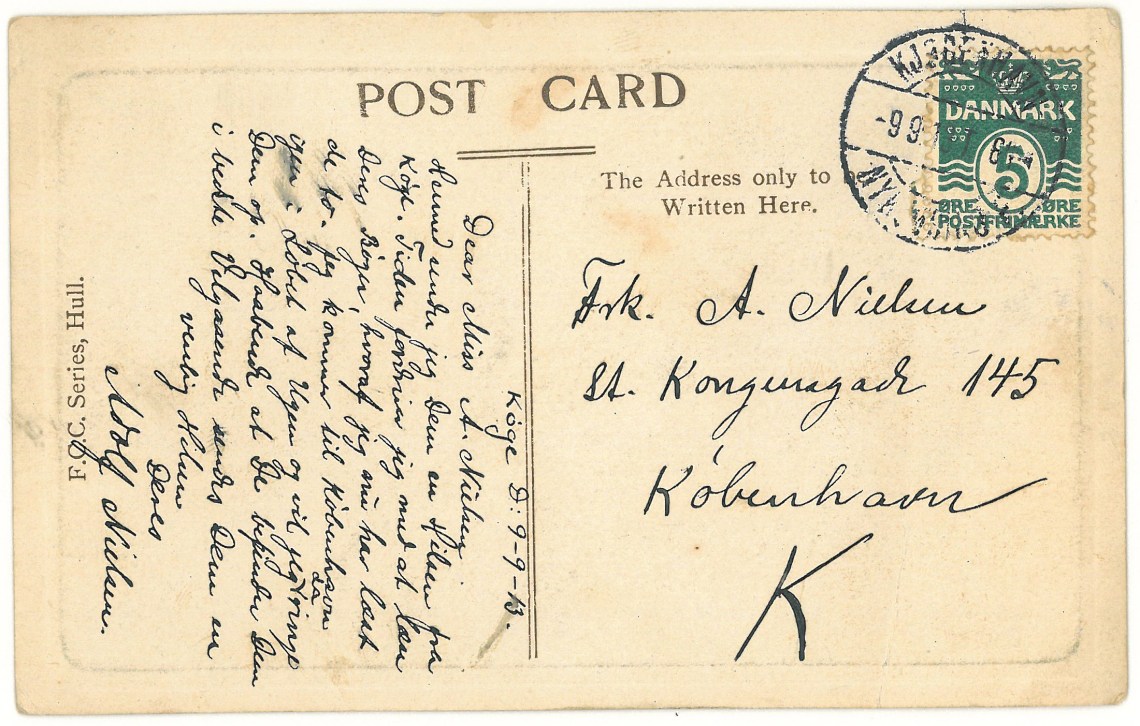 POST CARD
The Address only to
Written Here.
DANMARK
5
ØRE ØRE
POSTFRIMÆRKE
Frk. A. Nielsen
St. Kongensgade 145
København
K
Køge D: 9-9-13.
Dear Miss A. Nielsen
Herved sender jeg Dem en Hilsen fra
Køge. Tiden fordriver jeg med at læse
Deres Bøger, hvoraf jeg nu har læst
de to. Jeg kommer til København
igen i Løbet af Ugen og vil jeg da ringe
Dem op. Haabende at De befinder Dem
i bedste Velgaaende sendes Dem en
venlig Hilsen
Deres
Adolf Nielsen.
F.G.C. Series, Hull.